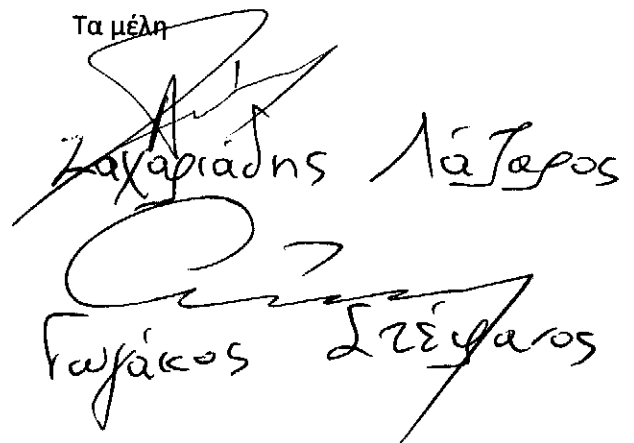 Τα μέλη
Ζαχαριάδης Λάζαρος
Γωγάκος Στέφανος